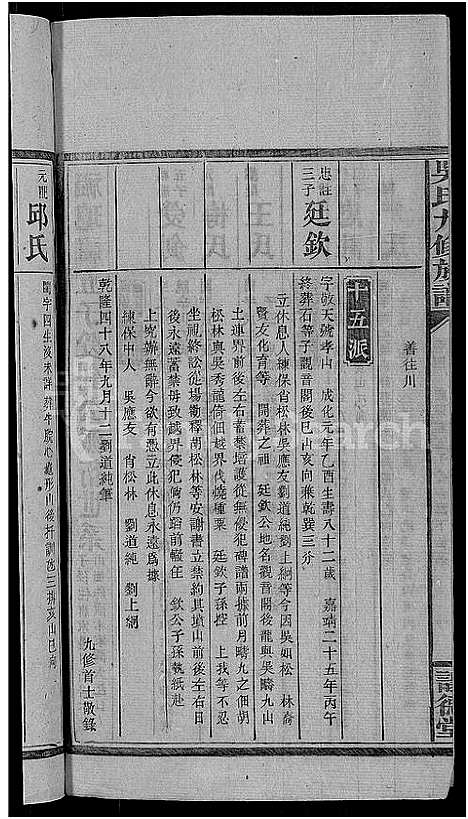 吳氏九修族譜
善往川
十五派
忠註三子 廷欽
字敬天號孝山 成化元年乙酉生壽八十二歲 嘉靖二十五年丙午
終葬石等子觀音閣後巳山亥向兼乾巽三分
立休息人練保肖松林吳應友劉道純劉上綱等今因吳如松 林裔
賢友化育等 開葬之祖 廷欽公地名觀音閣後龍與吳疇九山
土連界前後左右蓄禁培護從無侵犯碑譜兩據前月疇九之佃胡
松林與吳秀龍倚佃越界伐燒種粟 廷欽子孫控 上我等不忍
坐視終訟從塲勸釋胡松林等安謝書立禁約其墳山前後左右日
後永遠蓄禁毋致越界侵犯倘仍蹈前轍任 欽公子孫執紙赴
上究辦無辭今欲有憑立此休息永遠爲據
練保中人 吳應友 肖松林 劉道純 劉上綱
乾隆四十八年九月十二劉道純筆
九修首士敬錄
元配 邱氏
四生沒未詳葬牛腕心 形山後扦 三排亥山巳向